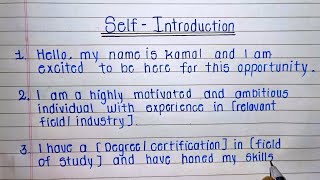 Self - Introduction
1. Hello, my name is Kamal and I am
excited to be here for this opportunity.
2. I am a highly motivated and ambitious
individual with experience in [relevant
field/industry].
3. I have a [Degree/certification] in [field
of study] and have honed my skills